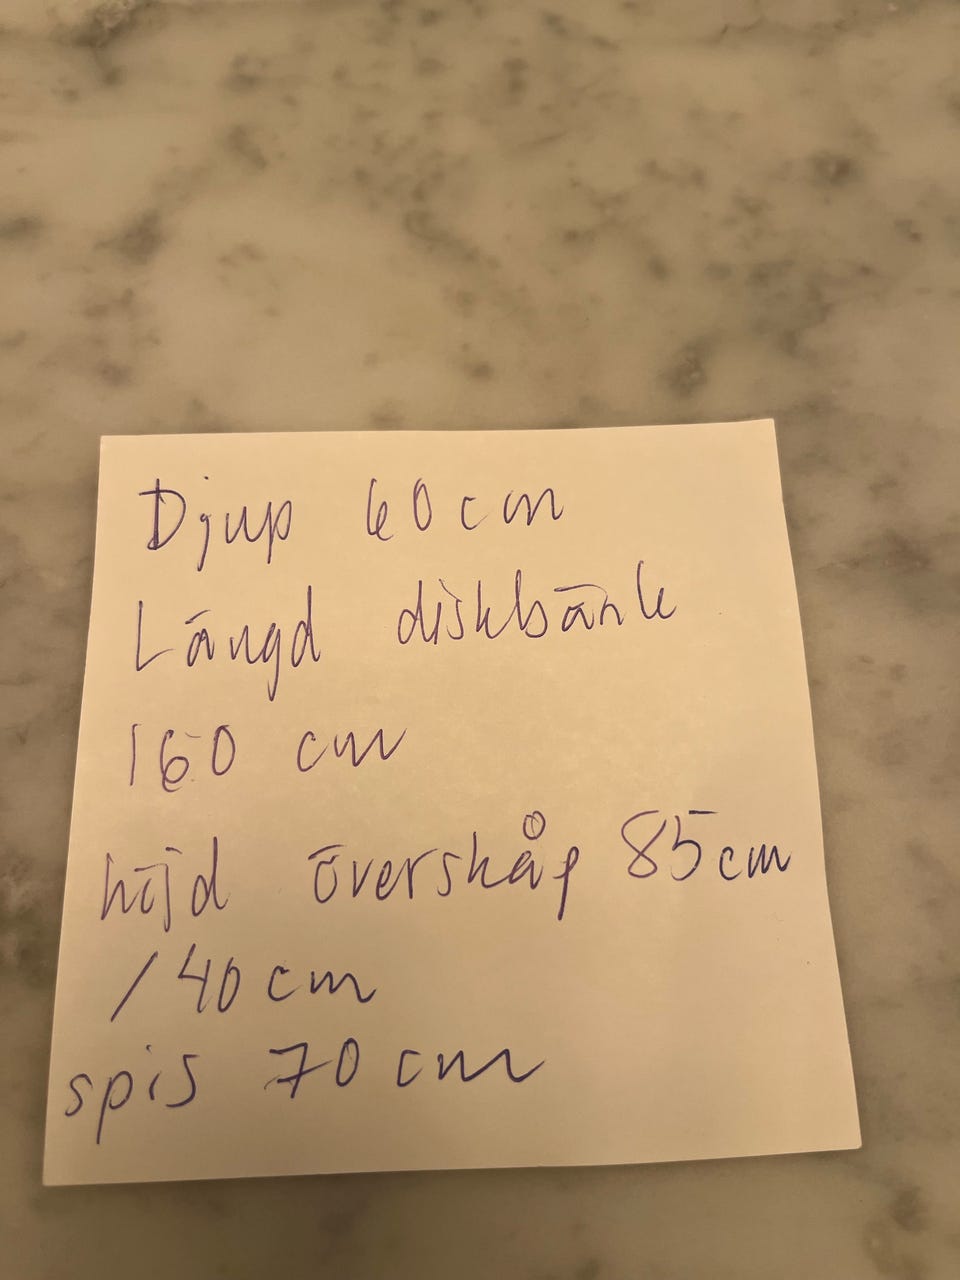 Djup 60 cm
Längd diskbänk
160 cm
höjd överskåp 85 cm
/ 40 cm
spis 70 cm